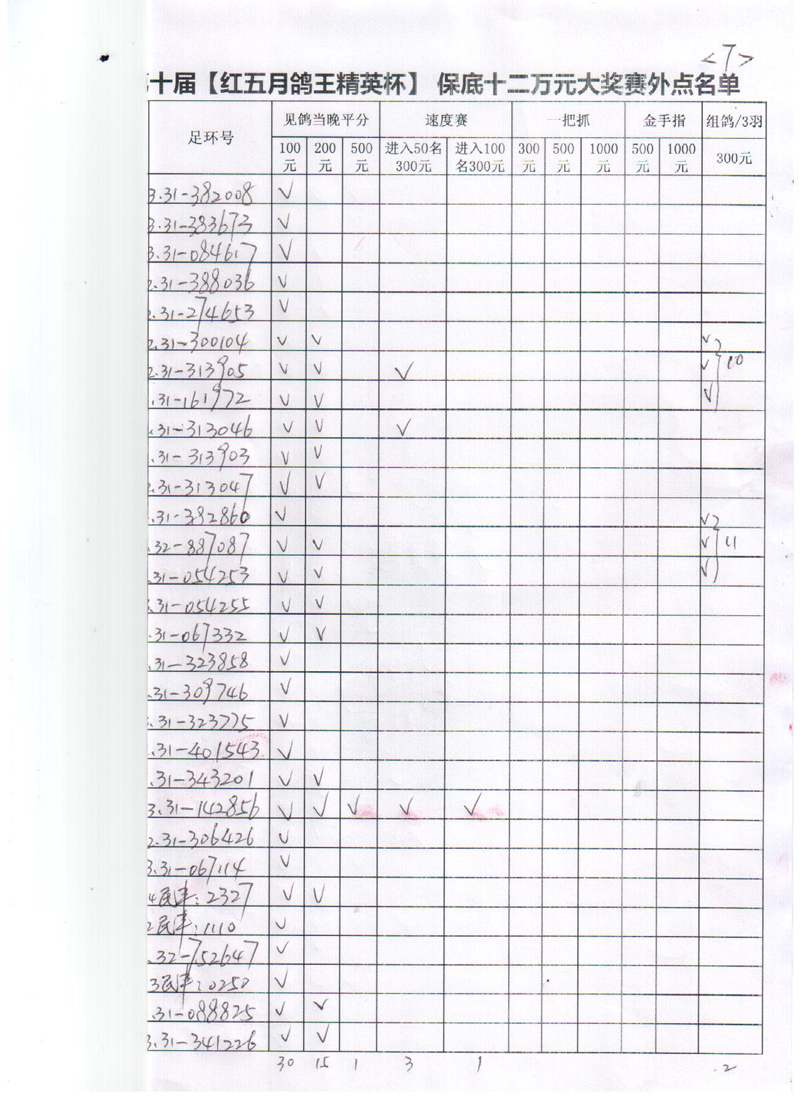 <7>
十届【红五月鸽王精英杯】 保底十二万元大奖赛外点名单
足环号 见鸽当晚平分 速度赛 一把抓 金手指 组鸽/3羽
100元 200元 500元 进入50名300元 进入100名300元 300元 500元 1000元 500元 1000元 300元
3.31-382008 √
3.31-383673 √
3.31-084617 √
2.31-388036 √
2.31-274653 √
2.31-300104 √ √ √
2.31-313905 √ √ √ √ 10
.31-161972 √ √ √
.31-313046 √ √ √
.31-313903 √ √
2.31-313047 √ √
.31-382860 √ √
.32-887087 √ √ √ 11
.31-054253 √ √ √
.31-054255 √ √
.31-067332 √ √
.31-323858 √
.31-309746 √
.31-323775 √
.31-401543 √
.31-343201 √ √
3.31-142856 √ √ √ √ √
2.31-306426 √
3.31-067114 √
4民丰:2327 √ √
2民丰:1110 √
.32-752647 √
3民丰:0250 √
.31-088825 √ √
3.31-341226 √ √
30 15 1 3 1 2